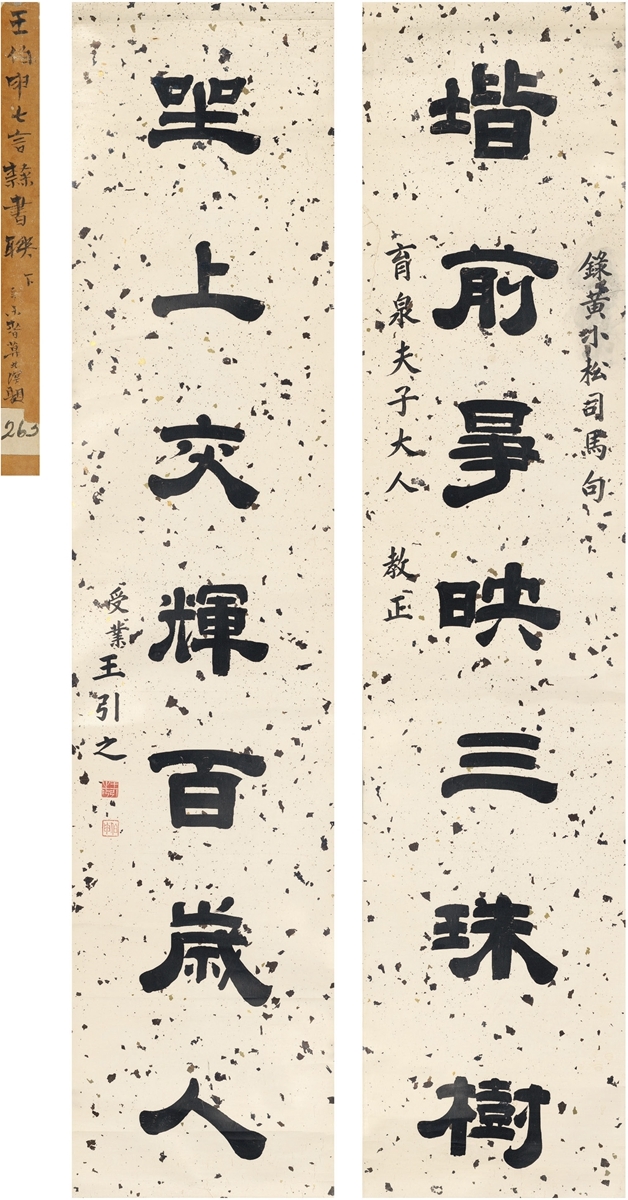 堦前映三珠樹
錄黃小松司馬句
育泉夫子大人 教正
坐上交輝百歲人
受業王引之
王伯申七言隸書聯 下
263